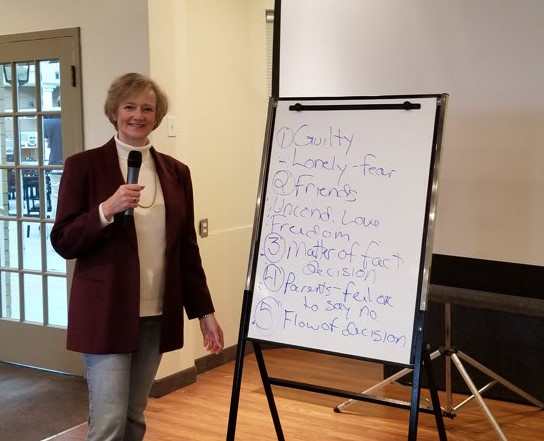 ① Guilty
- Lonely - fear
② Friends
Uncond. Love
Freedom
③ Matter of fact
decision
④ Parents - fail or
to say no
⑤ Flow of decision